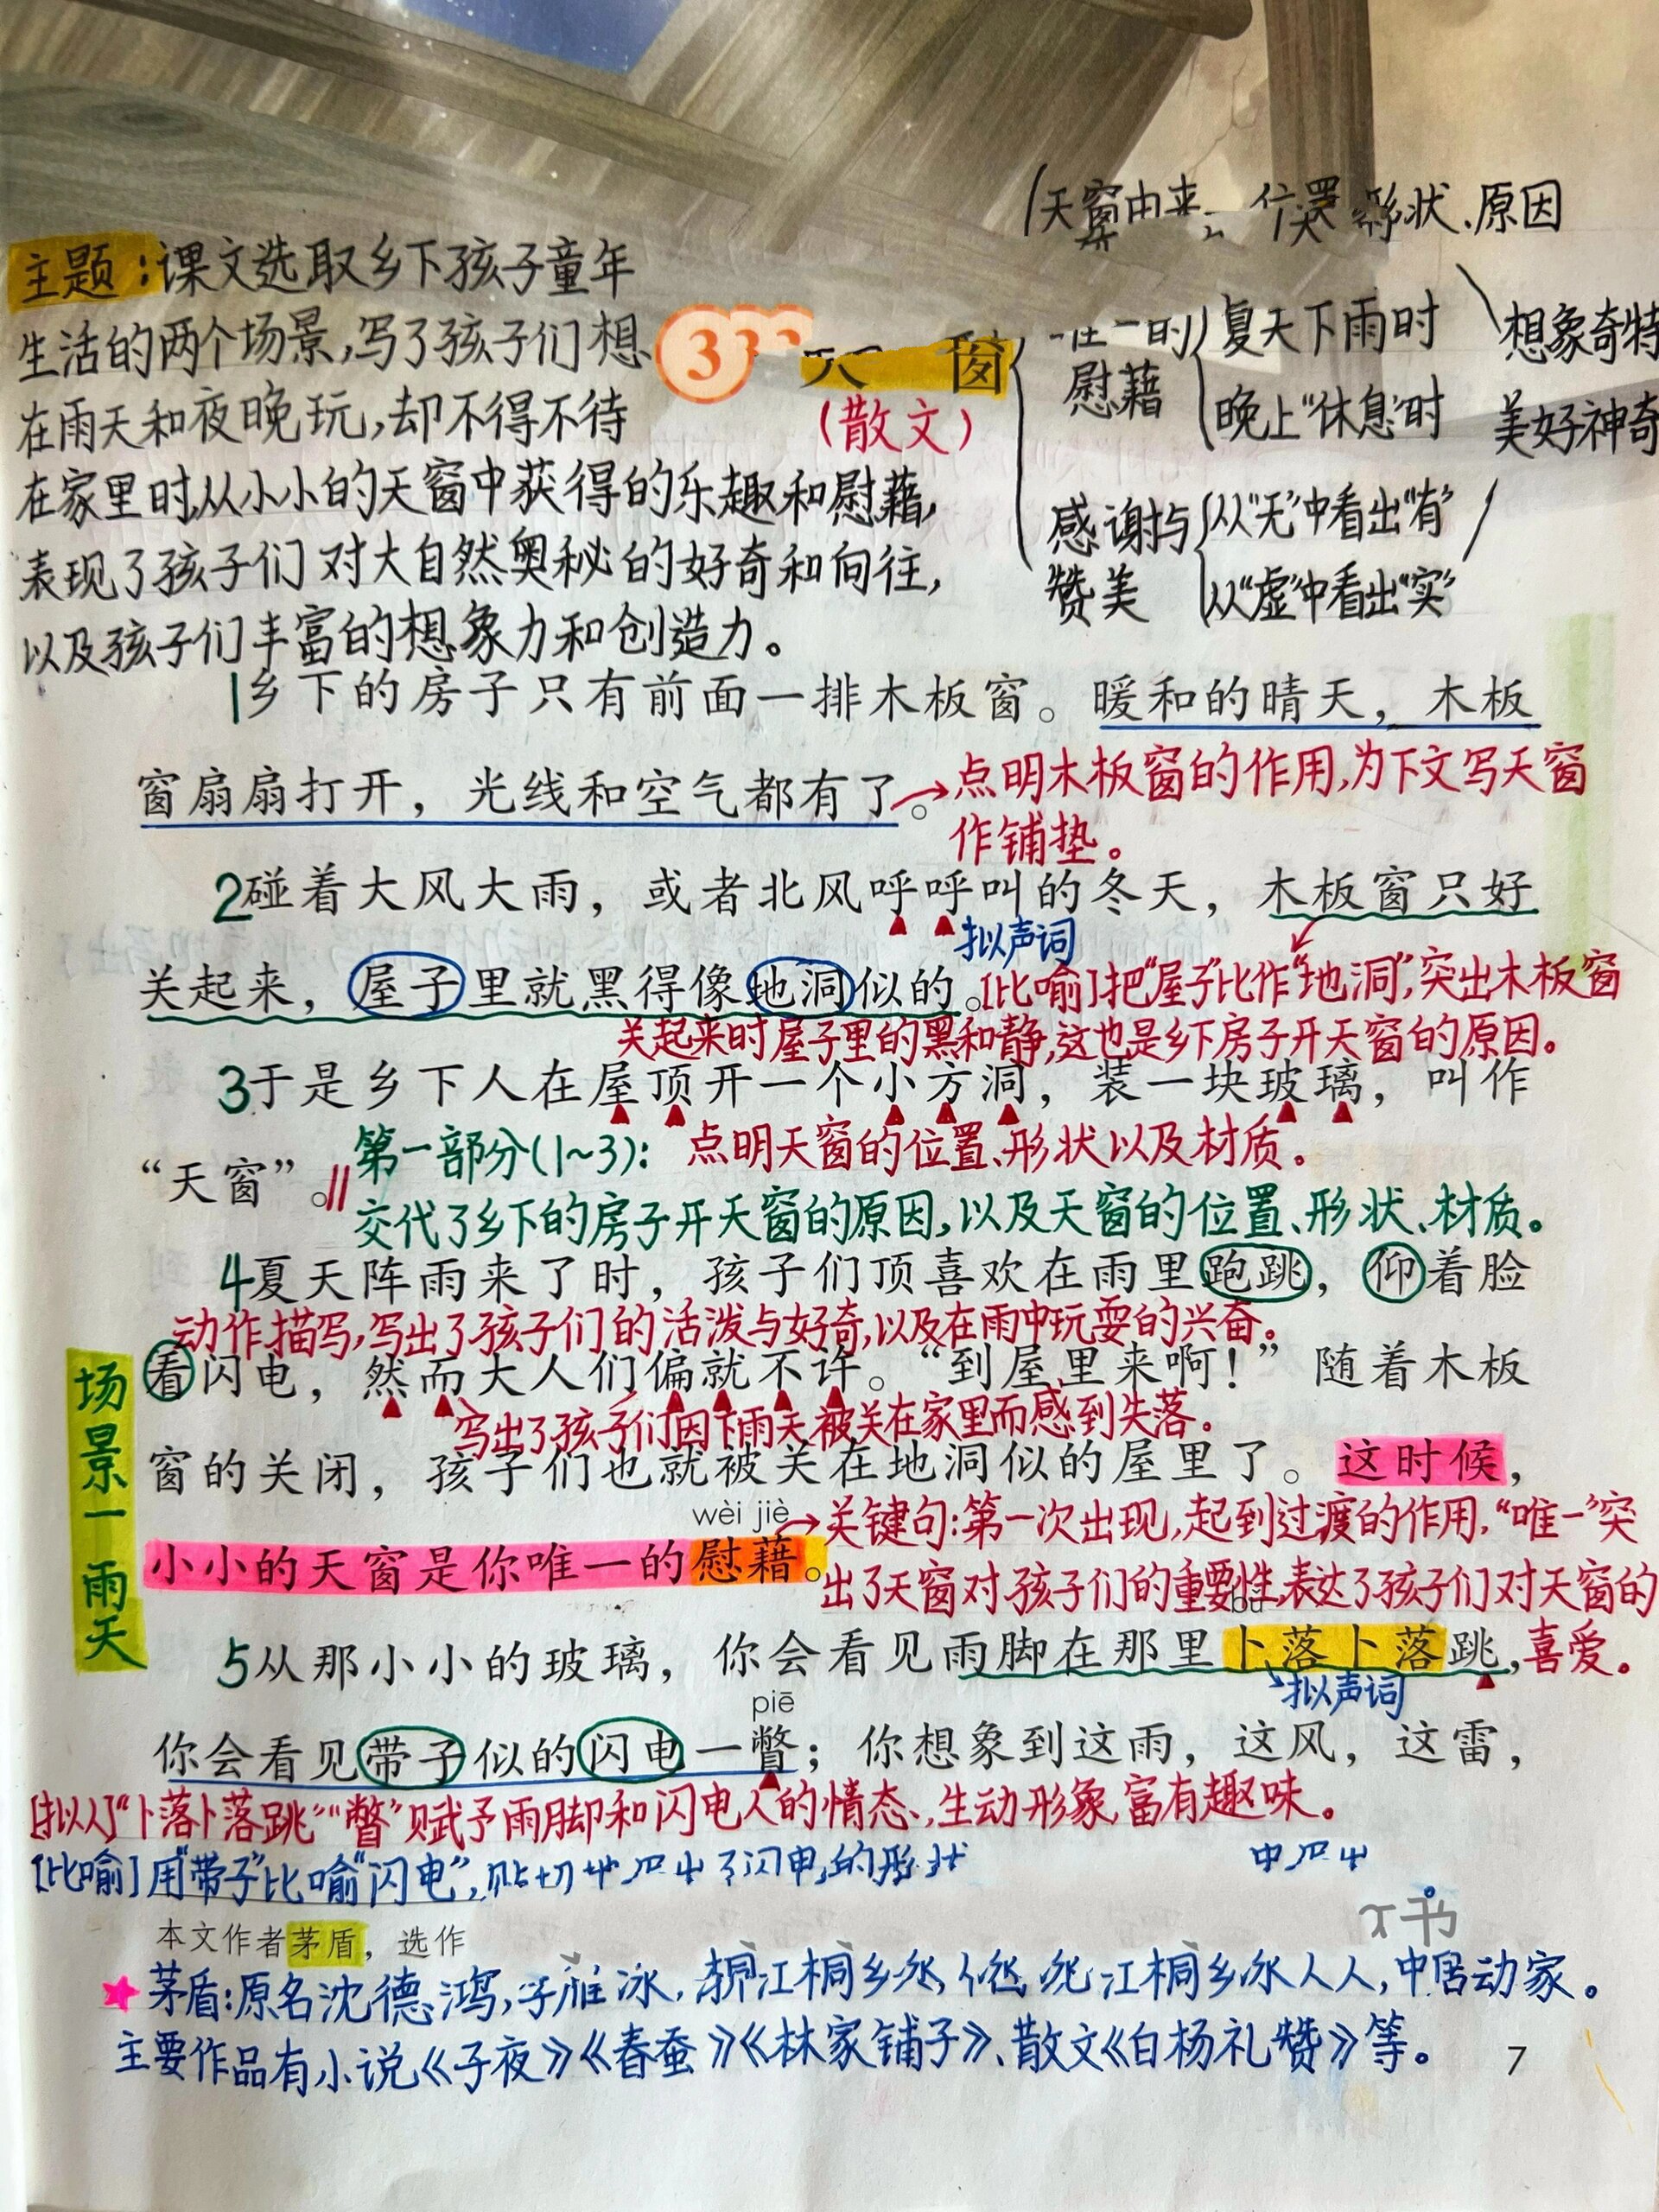 天窗由来 位置 形状、原因
主题:课文选取乡下孩子童年
生活的两个场景,写了孩子们想
在雨天和夜晚玩,却不得不待
在家里时,从小小的天窗中获得的乐趣和慰藉,
表现了孩子们对大自然奥秘的好奇和向往,
以及孩子们丰富的想象力和创造力。
3
窗
(散文)
一的
慰藉
夏天下雨时
晚上“休息”时
想象奇特
美好神奇
感谢与
赞美
从“无”中看出“有”
从“虚”中看出“实”
1乡下的房子只有前面一排木板窗。暖和的晴天,木板
窗扇扇打开,光线和空气都有了。
点明木板窗的作用,为下文写天窗
作铺垫。
2碰着大风大雨,或者北风呼呼叫的冬天,木板窗只好
拟声词
关起来,屋子里就黑得像地洞似的。
[比喻]把“屋子”比作“地洞”,突出木板窗
关起来时屋子里的黑和静,这也是乡下房子开天窗的原因。
3于是乡下人在屋顶开一个小方洞,装一块玻璃,叫作
“天窗”。
点明天窗的位置、形状以及材质。
第一部分(1~3):
交代了乡下的房子开天窗的原因,以及天窗的位置、形状、材质。
4夏天阵雨来了时,孩子们顶喜欢在雨里跑跳,仰着脸
动作描写,写出了孩子们的活泼与好奇,以及在雨中玩耍的兴奋。
看闪电,然而大人们偏就不许。“到屋里来啊!”随着木板
写出了孩子们因下雨天被关在家里而感到失落。
窗的关闭,孩子们也就被关在地洞似的屋里了。这时候,
wèi jiè
小小的天窗是你唯一的慰藉。
关键句:第一次出现,起到过渡的作用,“唯一”突
出了天窗对孩子们的重要性,表达了孩子们对天窗的
喜爱。
场景一 雨天
bǔ
5从那小小的玻璃,你会看见雨脚在那里卜落卜落跳,
拟声词
piē
你会看见带子似的闪电一瞥;你想象到这雨,这风,这雷,
[拟人]“卜落卜落跳”“瞥”赋予雨脚和闪电人的情态,生动形象,富有趣味。
[比喻]用“带子”比喻“闪电”,
了闪电的形状
本文作者茅盾,选作
茅盾:原名沈德鸿,
江桐乡
主要作品有小说《子夜》《春蚕》《林家铺子》、散文《白杨礼赞》等。
7